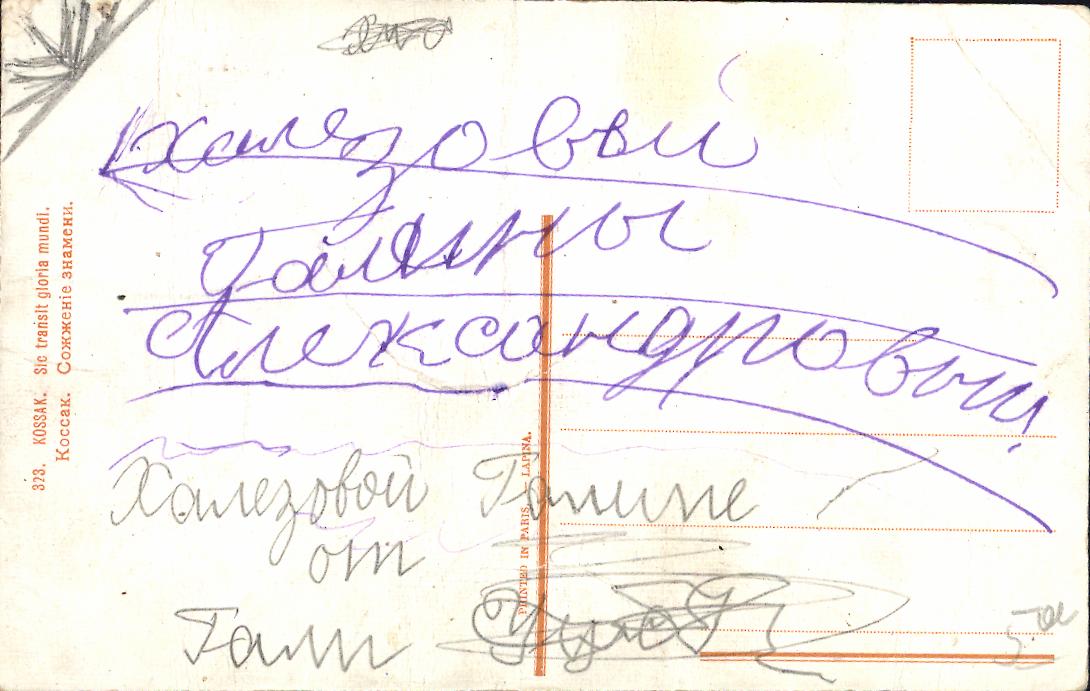 халезовый
Галины
Александровый!
Халезовой Галине
от
Гали
5 а
323. KOSSAK. Sic transit gloria mundi.
Коссак. Сожженіе знамени.
PRINTED IN PARIS. — LAPINA.